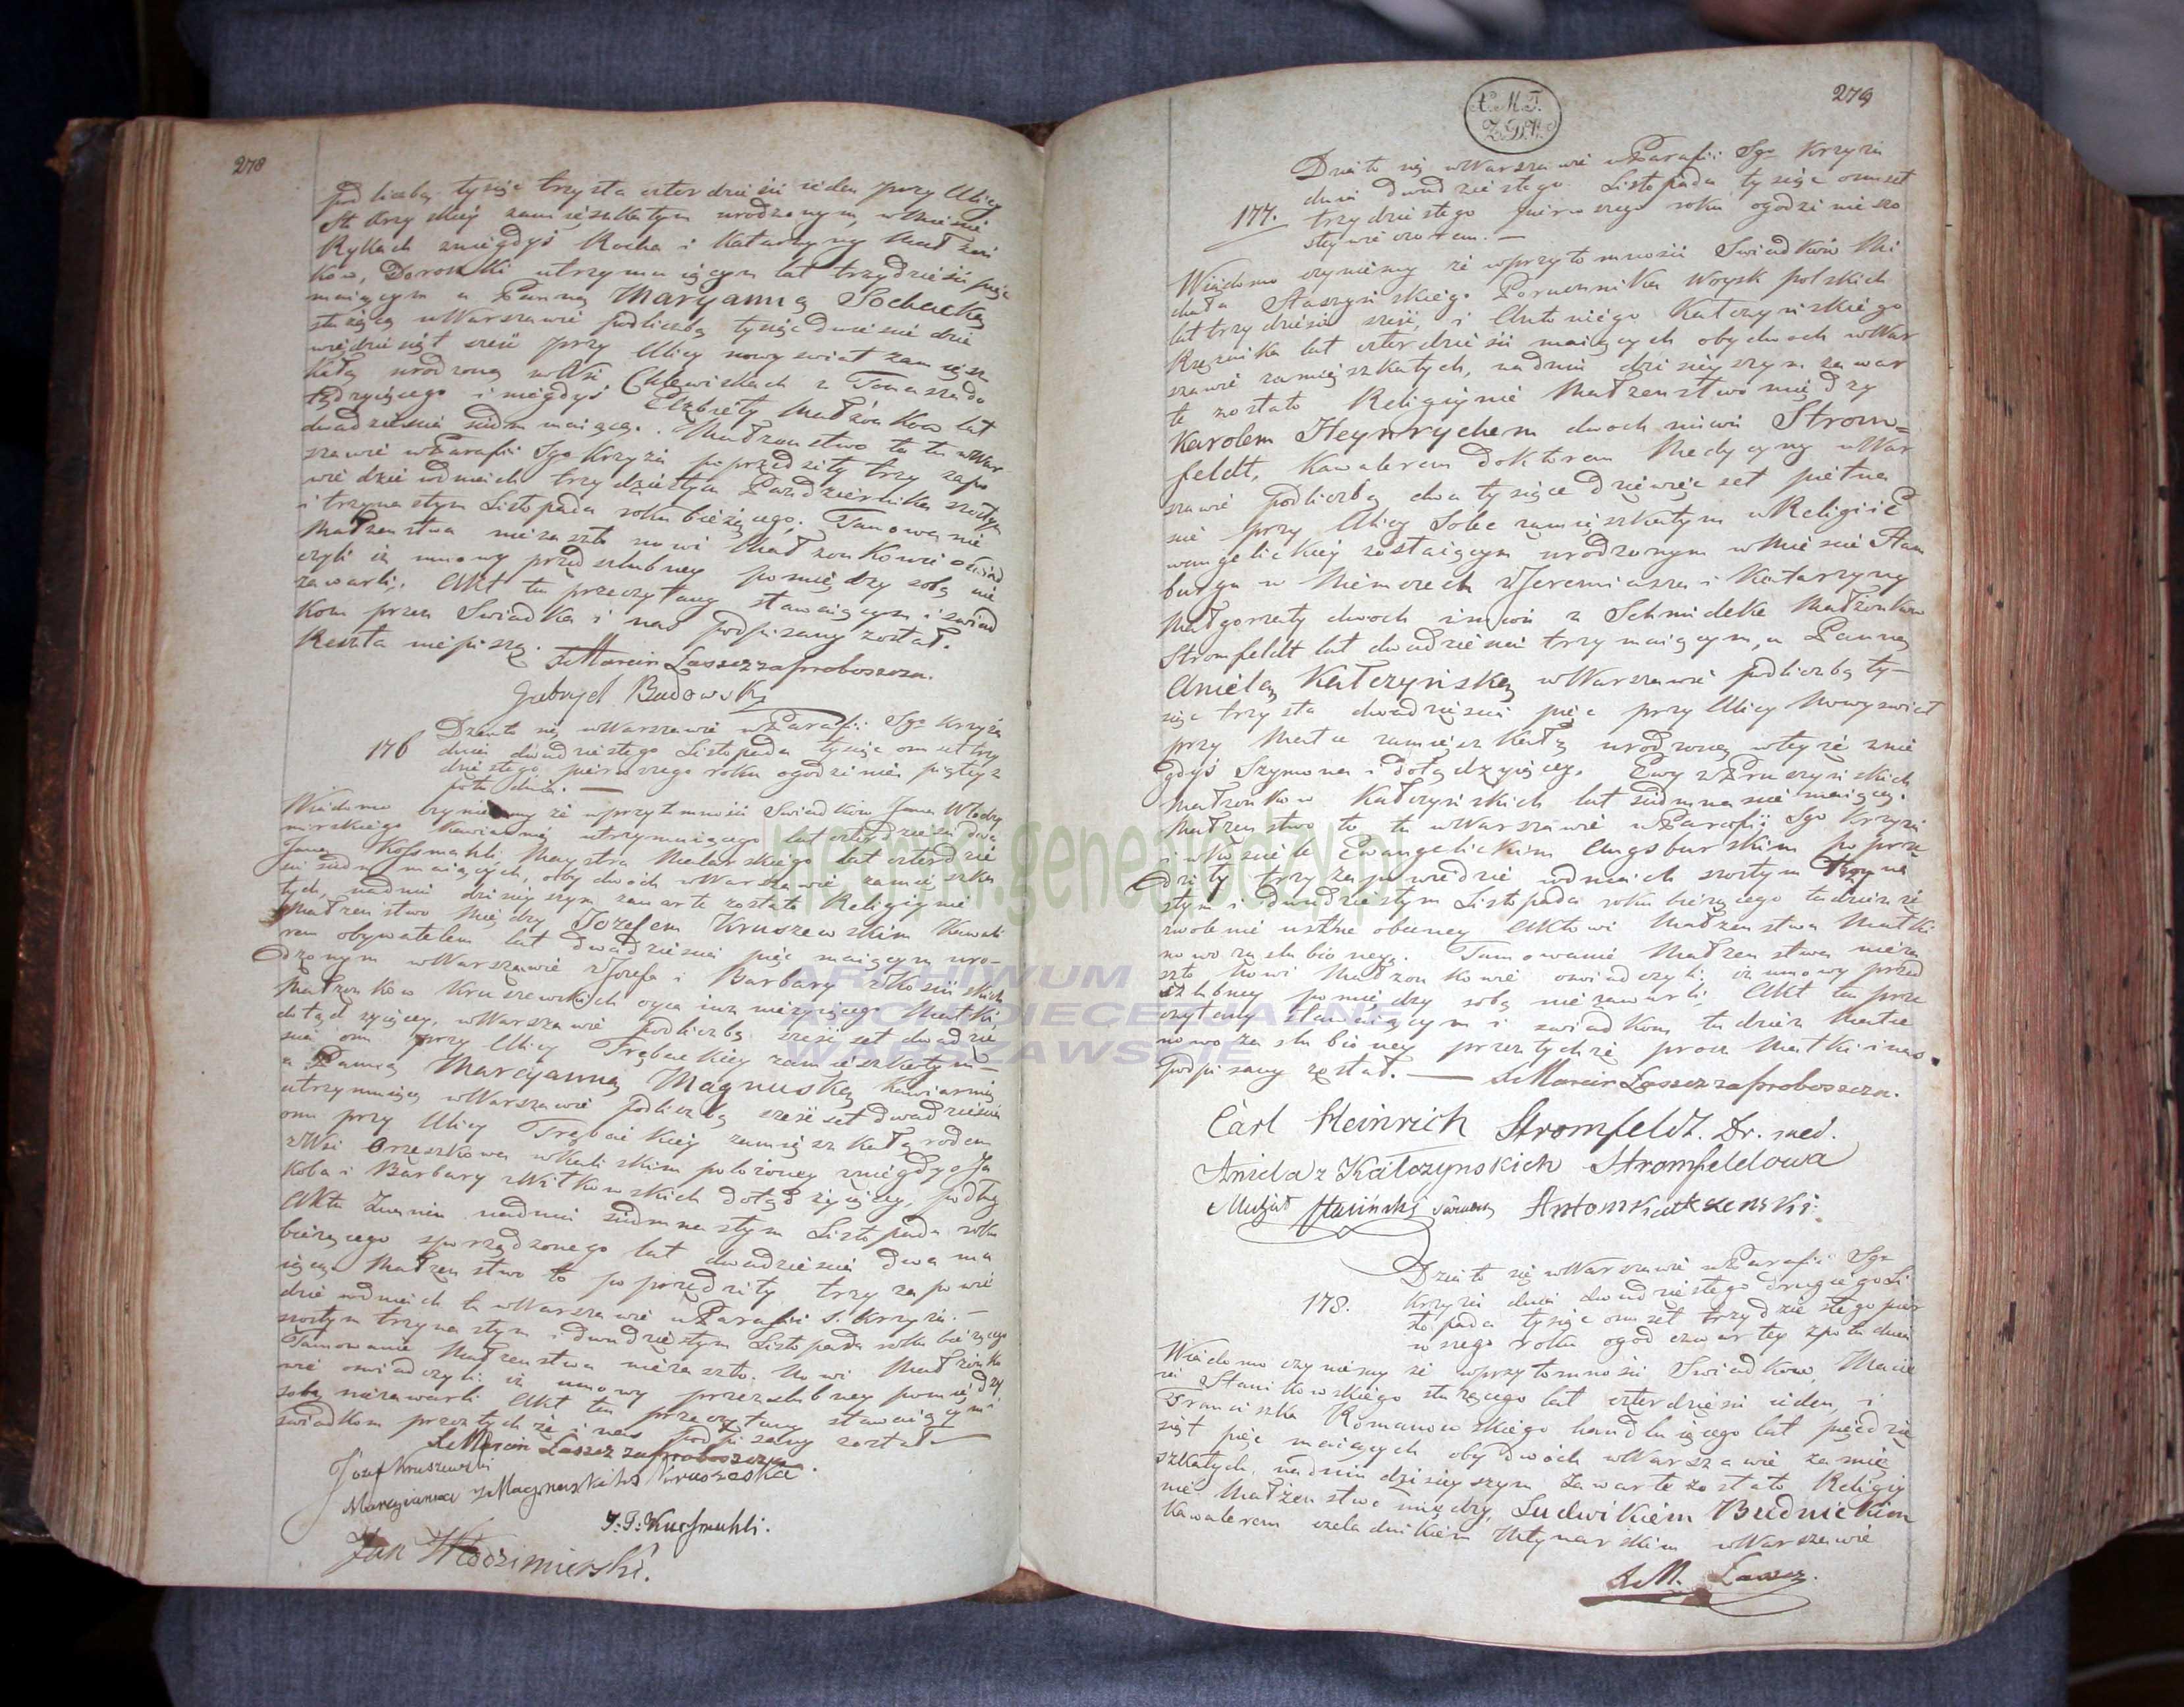 278
pod liczbą tysiąc trzysta czterdzieści ieden przy Ulicy
Sto Krzyskiey zamieszkałym urodzonym, w Mieście
Rykach z niegdyś Rocha i Katarzyny Małżon
ków, Dorożki utrzymuiącym lat trzydzieści pięć
maiącym a Panną Maryanną Sochacką
służącą w Warszawie pod liczbą tysiąc dwieście dzie
więdziesiąt sześć przy Ulicy nowy swiat zamiesz
kałą urodzoną w Wsi Chlewiskach z Tomasza do
tąd żyiącego i niegdyś Elżbiety Małżonków lat
dwadzieścia siedm maiącą. Małżenstwo to tu w War
szawie w Parafii Sgo Krzyża poprzedziły trzy zapo
wiedzie w dniach trzydziestym Października szóstym
i trzynastym Listopada roku bieżącego. Tamowanie
Małżenstwa nie zaszło nowi Małżonkowie oświad
czyli iż umowy przedslubney pomiędzy sobą nie
zawarli. Akt ten przeczytany stawaiącym i świad
kom przez Swiadka i nas podpisany został.
Reszta nie piszą. X Marcin Lassez za proboszcza.
Gabryel Budowski
176
Działo się w Warszawie w Parafii Sgo Krzyża
dnia dwudziestego Listopada tysiąc omset trzy
dziestego pierwszego roku o godzinie piątey z
południa. —
Wiadomo czyniemy że w przytomności Swiadków Jana Włodzi
mirskiego Kawiarnią utrzymuiącego lat czterdzieści dwa
Jana Kossmahli Maystra Malarskiego lat czterdzie
ści siedm maiących, obydwóch w Warszawie zamieszka
łych, na dniu dzisieyszym zawarte zostało Religiynie
Małżeństwo między Jozefem Kruszewskim Kawale
rem obywatelem lat dwadzieścia pięć maiącym uro-
dzonym w Warszawie z Jozefa i Barbary z Kosińskich
Małżonków Kruszewskich oyca iuż nieżyiącego Matki
dotąd żyiącey, w Warszawie pod liczbą sześć set dwadzie
ścia ośm przy Ulicy Trębackiey zamieszkałym —
a Panną Maryanną Magnuską Kawiarnią
utrzymuiącą w Warszawie pod liczbą sześć set dwadzieścia
ośm przy Ulicy Trębackiey zamieszkałą rodem
z Wsi Orzeszkowa w Kaliskim położoney z niegdyś Ja
koba i Barbary z Witkowskich dotąd żyiącey, podług
Aktu Znania na dniu siedmnastym Listopada roku
bieżącego sporządzonego lat dwadzieścia dwa ma
iącą. Małżenstwo to poprzedziły trzy zapowie
dzie w dniach tu w Warszawie w Parafii S. Krzyża. —
szóstym trzynastym i dwudziestym Listopada roku bieżącego
Tamowanie Małżenstwa nie zaszło. Nowi Małżonko
wie oświadczyli iż umowy przedslubney pomiędzy
sobą nie zawarli Akt ten przeczytany stawaiącym i
świadkom przez tychże i nas podpisany został —
X Marcin Lassez za proboszcza.
Józef Kruszewski
Maryanna z Magnuskich Kruszeska
J: P: Kossmahli.
Jan Włodzimirski.
279
X. M. T.
Z. D. N.
Działo się w Warszawie w Parafii Sgo Krzyża
dnia dwudziestego Listopada tysiąc omset
177. trzydziestego pierwszego roku o godzinie szo
stey wieczorem. —
Wiadomo czyniemy że w przytomności Swiadków Mi
chała Staszyńskiego Porucznika Woysk polskich
lat trzydzieści sześć, i Antoniego Kałczyńskiego
Rzeźnika lat czterdzieści maiących obydwoch w War
szawie zamieszkałych, na dniu dzisieyszym zawar
te zostało Religiynie Małżenstwo między
Karolem Heynrychem dwoch imion Strom=
feldt, Kawalerem Doktorem Medycyny w War
szawie pod liczbą dwa tysiące dziewięćset pietna
ście przy Ulicy Solec zamieszkałym w Religii E
wangelickiey zostaiącym urodzonym w Miescie Ham
burgu w Niemczech z Jeremiasza i Katarzyny
Małgorzaty dwoch imion z Schmideke Małżonków
Stromfeldt lat dwadzieścia trzy maiącym, a Panną
Anielą Kałczyńską w Warszawie pod liczbą ty—
siąc trzysta dwadzieścia pięć przy Ulicy Nowy swiat
przy Matce zamieszkałą urodzoną w teyże z nie
gdyś Szymona i dotąd żyiącey Ewy z Pruszyńskich
Małżonków Kałczyńskich lat siedmnaście maiącą.
Małżenstwo to tu w Warszawie w Parafii Sgo Krzyża
i w Kościele Ewangelickim Augsburskim poprze
dziły trzy zapowiedzie w dniach szóstym trzyna
stym i dwudziestym Listopada roku bieżącego tudzież ze
zwolenie ustne obecney Aktowi Małżenstwa Matki
nowo zaslubioney. Tamowanie Małżenstwa nie za
szło Nowi Małżonkowie oswiadczyli iż umowy przed
szlubney pomiędzy sobą nie zawarli Akt ten prze
czytany stawaiącym i swiadkom tudzież Matce
nowo zaslubioney przez tychże procz Matki i nas
podpisany został. — X Marcin Lassez za proboszcza.
Carl Heinrich Stromfeldt. Dr. med.
Aniela z Kałczynskich Stromfeldowa
Michał Stasiński Antoni Kałczenski
Działo się w Warszawie w Parafii Sgo
178. Krzyża dnia dwudziestego drugiego Li
stopada tysiąc omset trzydziestego pier
wszego roku o godz czwartey z południa
Wiadomo czyniemy że w przytomności Swiadków, Macie
ia Stanikowskiego służącego lat czterdzieści ieden, i
Franciszka Romanowskiego handluiącego lat pięćdzie
siąt pięć maiących obydwóch w Warszawie zamie
szkałych, na dniu dzisieyszym zawarte zostało Religiy
nie Małżenstwo między, Ludwikiem Budnickim
Kawalerem czeladnikiem Młynarskim w Warszawie
X M. Lassez.
metryki.genealodzy.pl
ARCHIWUM
ARCHIDIECEZJALNE
WARSZAWSKIE